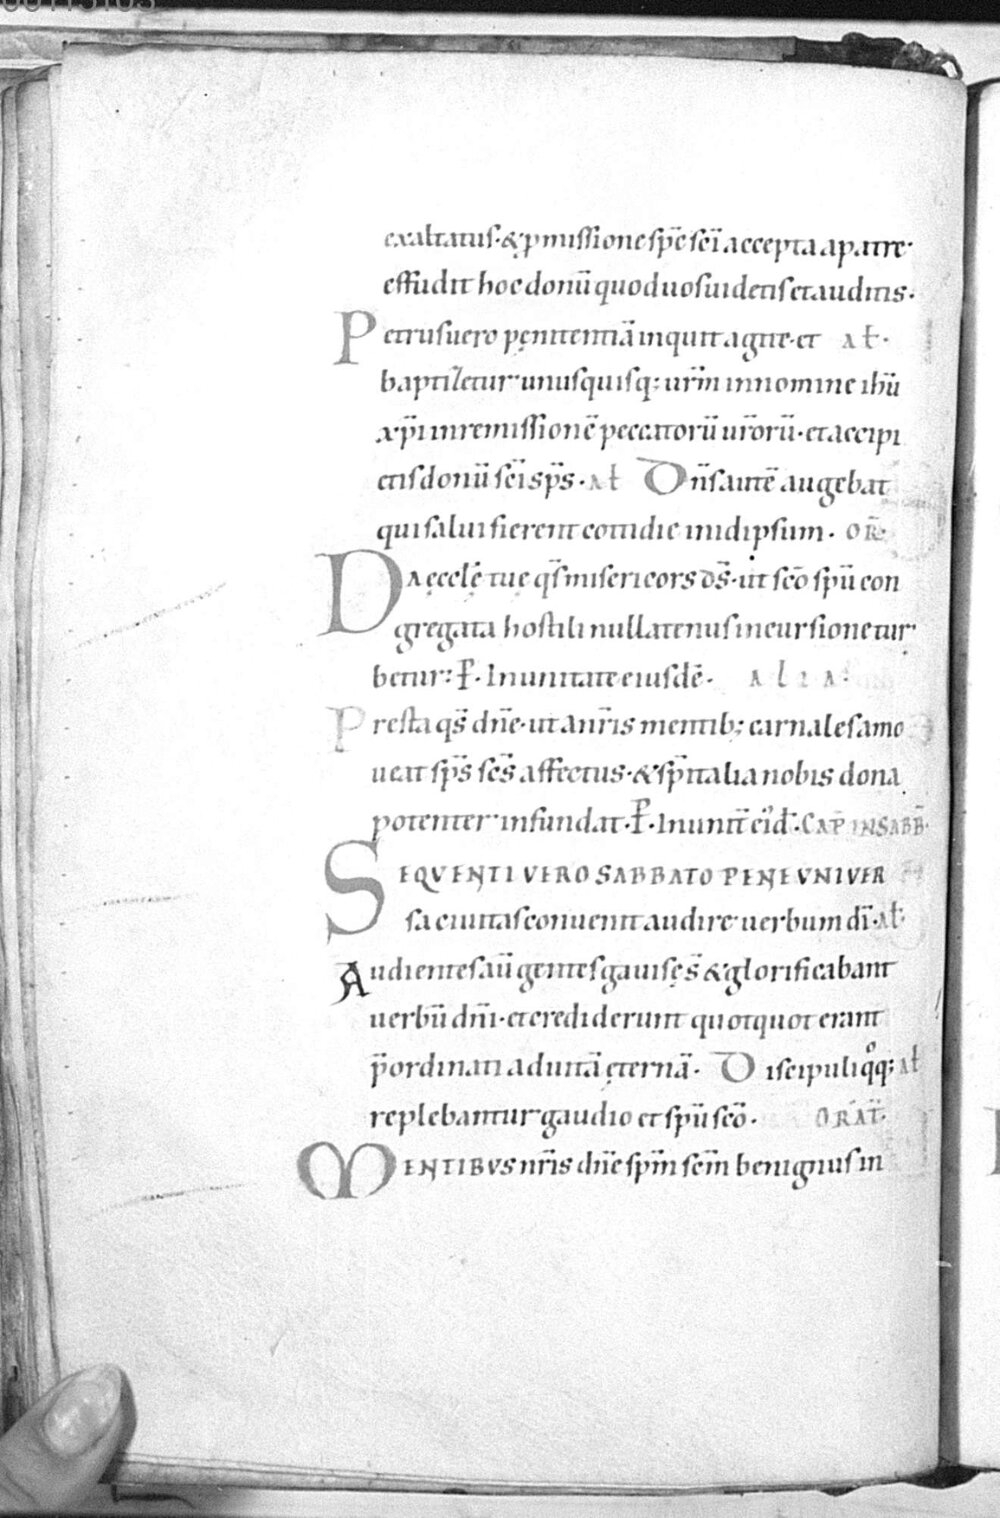 exaltatus· & ꝓmissione sp̄s sc̄i accepta a patre·
effudit hoc donū quod uos uidetis et auditis·
Petrus uero pęnitentiā inquit agite· et Aƚ·
baptizetur unusquisq: ur̄m in nomine ihū
xp̄i in remissionē peccatorū ur̄orū· et accipi
etis donū sc̄i sp̄s· Aƚ Dn̄s autē augebat
qui salui fierent cottidie in idipsum· OR̄
Da ęcclę̄ tuę qs̄ misericors ds̄· ut sc̄o spū con
gregata hostili nullatenus incursione tur
betur: P̄· In unitate eiusdē· ALIA·
Presta qs̄ dn̄e· ut a nr̄is mentib; carnales amo
ueat sp̄s sc̄s affectus· & sp̄italia nobis dona
potenter infundat· P̄· In unit̄ eid̄· CAP̄ IN SABB̄·
SEQUENTI VERO SABBATO PENE UNIVER
sa ciuitas conuenit audire uerbum dī· Aƚ·
Audientes aū gentes gauisę s̄ & glorificabant
uerbū dn̄i· et crediderunt quotquot erant
p̄ordinati ad uitā ęternā· Discipuli qͦq; Aƚ
replebantur gaudio et spū sc̄o· ORAT̄·
MENTIBUS nr̄is dn̄e sp̄m sc̄m benignus in